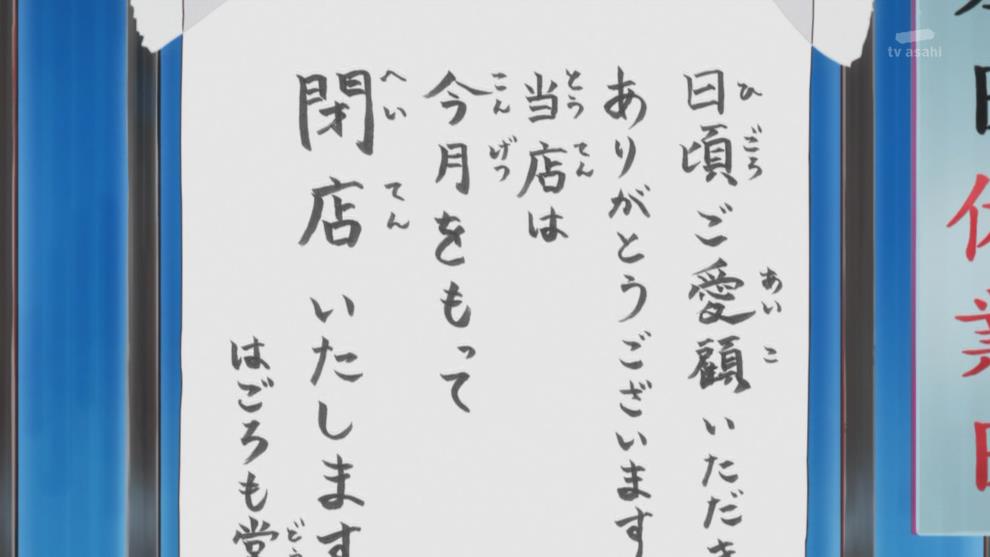 本日休業日
日頃ご愛顧いただき
ひごろ あいこ
ありがとうございます
当店は
とうてん
今月をもって
こんげつ
閉店いたします
へいてん
はごろも堂
どう
tv asahi